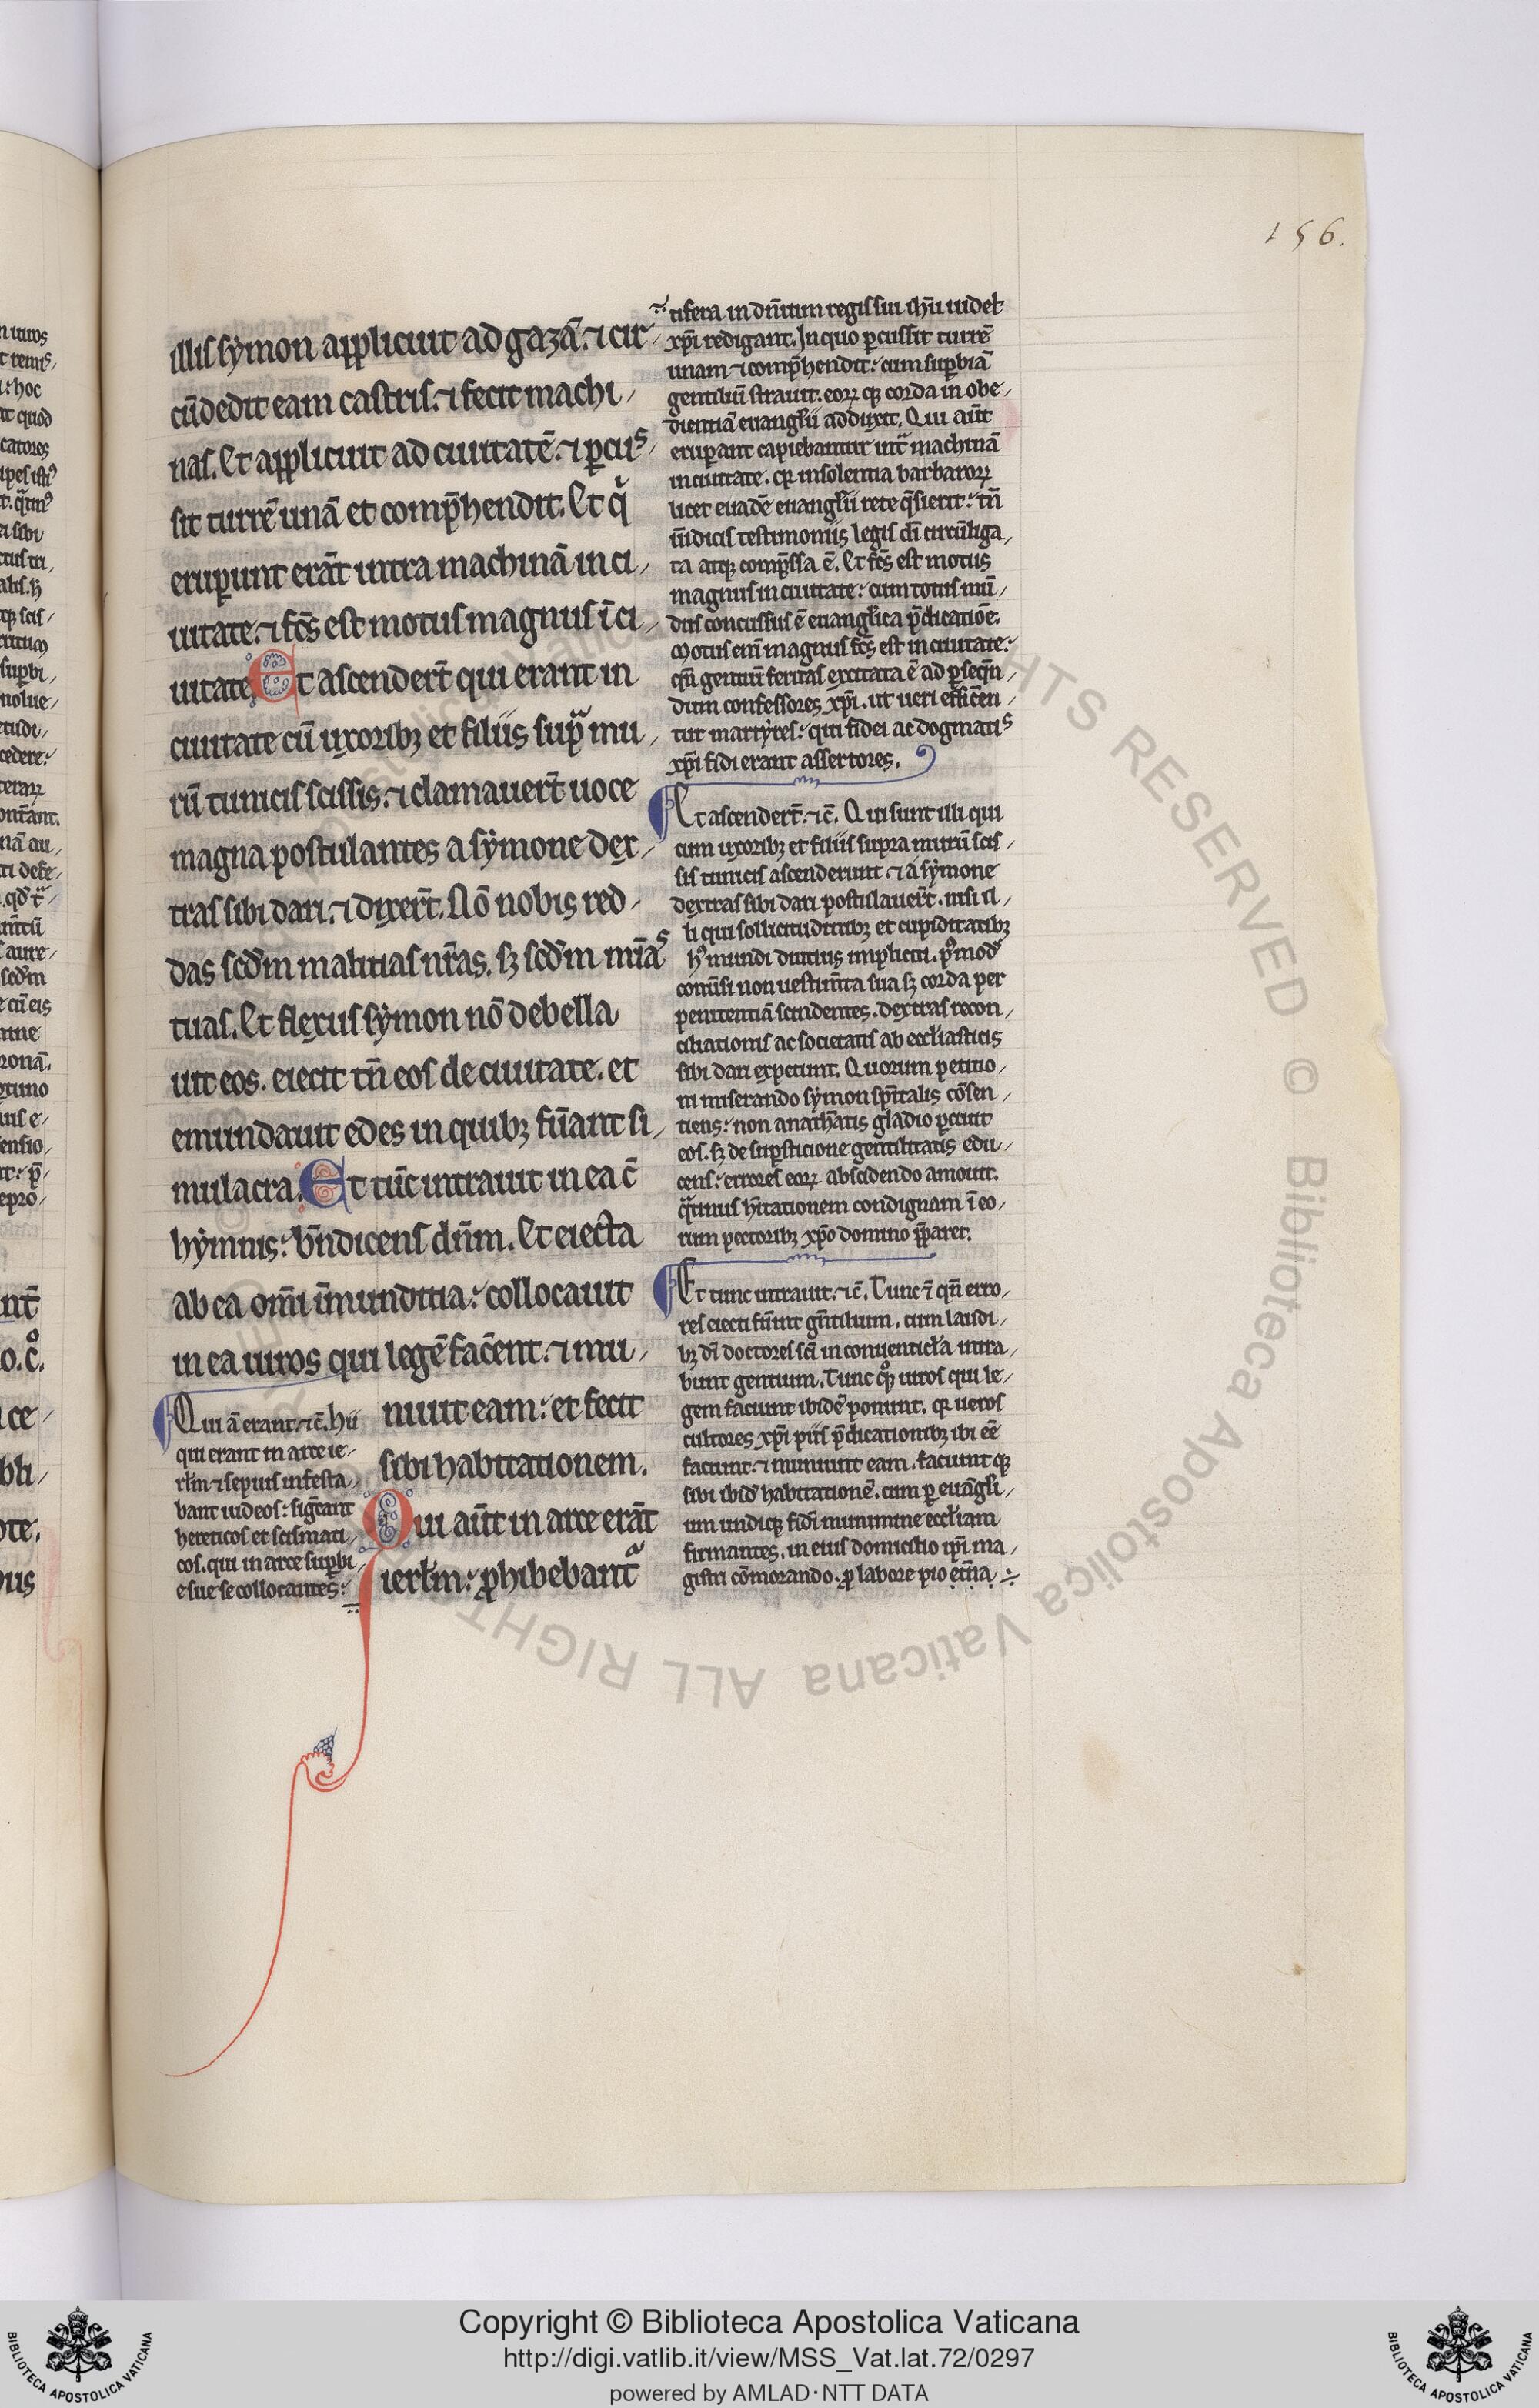 156.
illis sẏmon applicuit ad gazā. ⁊ cir
cūdedit eam castris. ⁊ fecit machi
nas. Et applicuit ad ciuitatē. ⁊ ꝑcuſ
sit turrē unā et comp̄hendit. Et q̇
erupunt erāt intra machinā in ci
uitate. ⁊ fc̄s est motus magnus ī ci
uitate. Et ascendert̄ qui erant in
ciuitate cū uxoribꝫ et filiis sup̄ mu
rū tunicis scissis. ⁊ clamauert̄ uoce
magna postulantes a sẏmone dex
tras sibi dari. ⁊ dixert̄. Nō nobis red
das scd̄m malitias nr̄as. sꝫ scd̄m mīas
tuas. Et flexus sẏmon nō debella
uit eos. eiecit tn̄ eos de ciuitate. et
emundauit edes in quibꝫ fūant si
mulacra. Et tūc intrauit in ea c̄
hẏmnis: bn̄dicens dn̄m. Et eiecta
ab ea om̄i īmunditia: collocauit
in ea uiros qui legē fac̄ent. ⁊ mu
niuit eam: et fecit
sibi habitationem.
Qui aūt in arce erāt
ierl̄m: ꝓhibebant̄
Qui ā erant. ⁊c̄. hii
qui erant in arce ie
rl̄m ⁊ sepius infesta
bant iudeos: sig̅eant
hereticos et scismati
cos. qui in arce suꝑbi
e sue se collocantes:
tifera in dn̄ium regis sui ih̄u uidel
xp̄i redigant. In quo ꝑcussit turrē
unam ⁊ comp̄hendit: cum suꝑbiā
gentiliū strauit. eoꝝ qꝫ corda in obe
dientiā euangl̄ii adduxit. Qui aūt
eruꝑant capiebantur int̄ machinā
in ciuitate. qꝛ insolentia barbaroꝝ
licet euadē euangl̄ii rete q̄sierit: tn̄
ūidicis testimoniis legis di circūliga
ta atqꝫ comp̄ssa ē. Et fc̄s est motus
magnus in ciuitate: cum totus mū
dus concussus ē euangl̄ica p̄dicatiōe.
Motus eni magnus fc̄s est in ciuitate:
qn̄ gentiū feritas excitata ē ad ꝑseqn̄
dum confessores xp̄i. ut ueri effic̄en
tur martẏres: qui fidei ac dogmatis
xp̄i fidi erant assertores.
Et ascendert̄. ⁊c̄. Qui sunt illi qui
cum uxoribꝫ et filiis supra murū scis
sis tunicis ascenderunt ⁊ a sẏmone
dextras sibi dari postulauert̄. nisi il
li qui sollicitudinibꝫ et cupiditatibꝫ
hꝰ mundi diutius impliciti. pꝰmodū
conūsi non uestim̄ta sua sꝫ corda per
penitentiā scindentes. dextras recon
ciliationis ac societatis ab eccl̄iasticis
sibi dari expetunt. Quorum petitio
ni miserando sẏmon sp̄italis cōsen
tiens: non anath̄atis gladio ꝑcutit
eos. sꝫ de suꝑsticione gentilitatis edu
cens: errores eoꝝ abscidendo amouit.
q̄tinus h̄itationem condignam ī eo
rum pectoribꝫ xp̄o domino p̄paret.
Et tunc intrauit. ⁊c̄. Tunc ī qn̄ erro
res eiecti fūint gn̄tilium. cum laudi
bꝫ di doctores sc̄i in conuenticl̄a intra
bunt gentium. Tunc qꝫ uiros qui le
gem faciunt ibidē ponunt. qꝛ ueros
cultores xp̄i piis p̄dicationibꝫ ibi eē
faciunt. ⁊ muniunt eam. faciunt qꝫ
sibi ibid̄ habitationē. cum ꝑ euāgl̄i
um undiqꝫ fidei munimine eccl̄iam
firmantes. in eius domicilio ip̄i ma
gistri cōmorando. ꝓ labore pio etn̄a
Copyright © Biblioteca Apostolica Vaticana
http://digi.vatlib.it/view/MSS_Vat.lat.72/0297
powered by AMLAD·NTT DATA